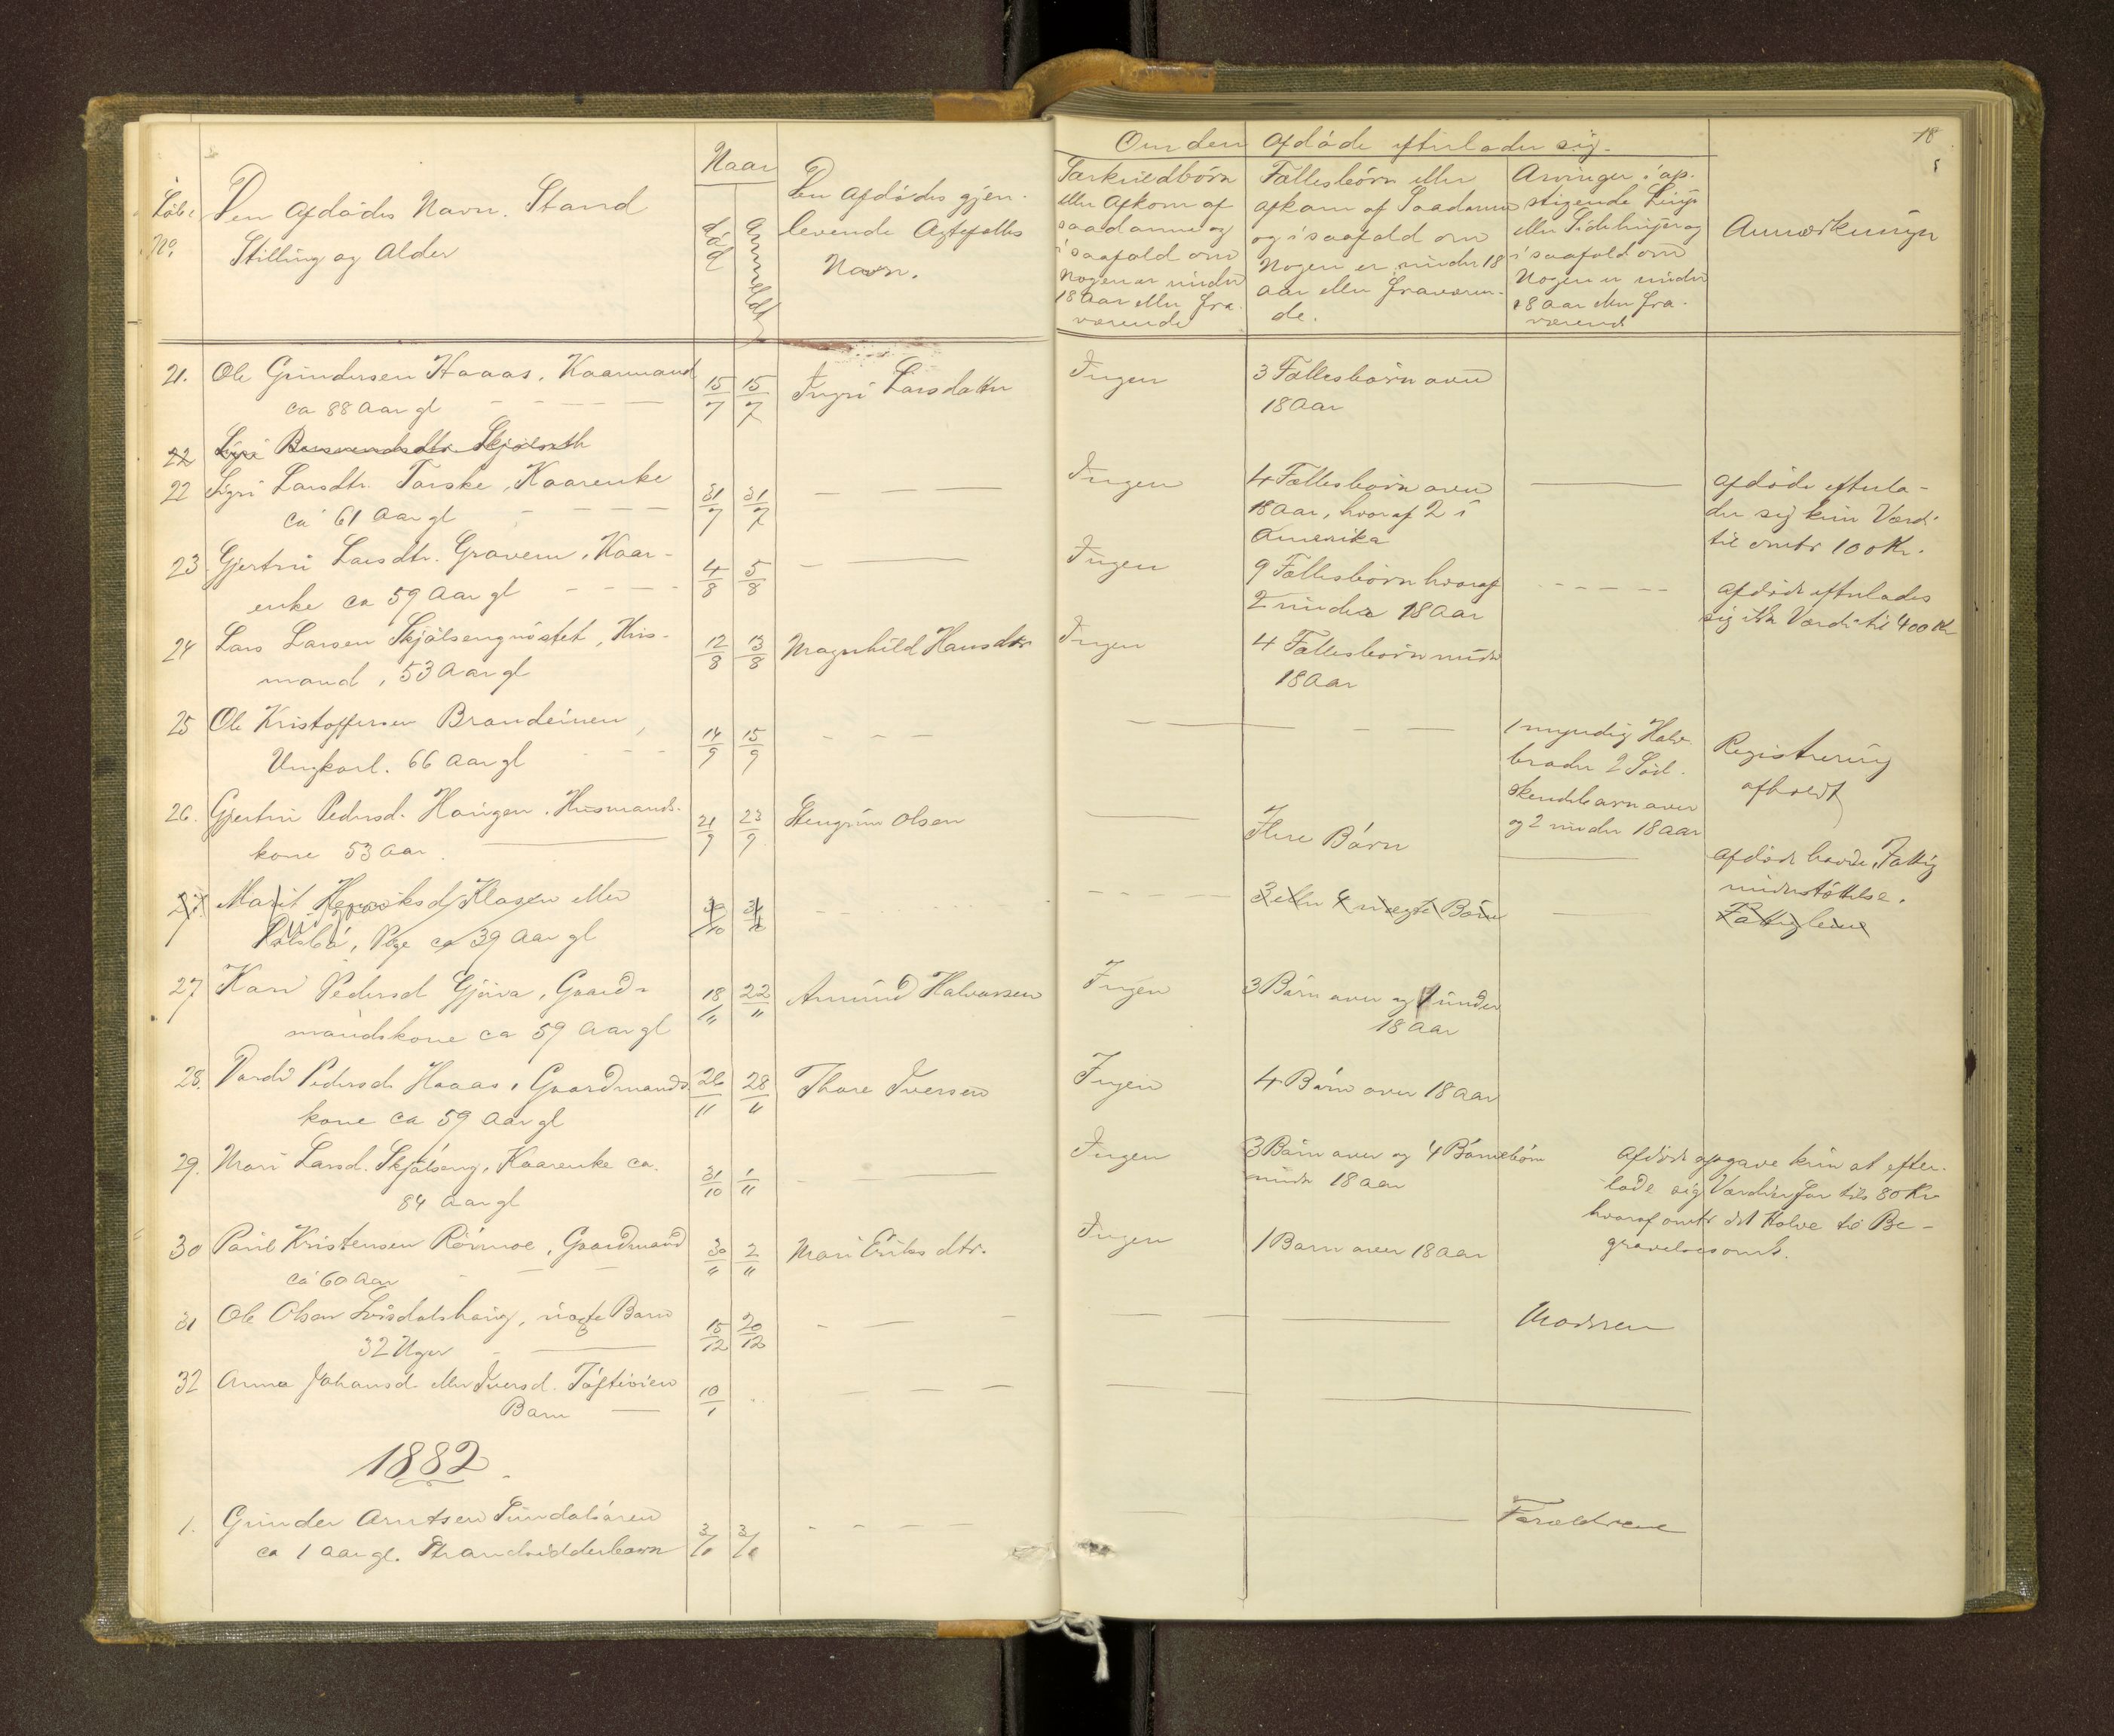 Om den Afdøde efterlader sig.
18
Løbe No.
Den Afdødes Navn. Stand
Stilling og Alder
Naar
død
Anmeldt
Den Afdødes gjen-
levende Ægtefælles
Navn.
Særkuldbørn
eller Afkom af
saadanne og
i saafald om
Nogen er under
18 Aar eller fra-
værende
Fællesbørn eller
afkom af Saadanne
og i saafald om
Nogen er under 18
aar eller fraværen-
de.
Arvinger i op-
stigende Linje
eller Sidelinjer og
i saafald om
Nogen er under
18 Aar eller fra-
værende
Anmærkninger
21. Ole Gundersen Haaas, Kaarmand 15/7 15/7 Ingri Larsdatter Ingen 3 Fællesbørn over
ca 88 Aar gl 18 Aar
22
22 Sigri Larsdtr. Torske, Kaarenke 31/7 31/7 Ingen 4 Fællesbørn over Afdøde efterla-
ca 61 Aar gl 18 Aar, hvoraf 2 i der sig kun Værdi
Amerika til omtr 100 Kr.
23 Gjertru Larsdtr. Gravem, Kaar- 4/8 5/8 Ingen 9 Fællesbørn hvoraf Afdøde efterlades
enke ca 59 Aar gl 2 under 18 Aar sig ikke Værdi til 400 Kr
24 Lars Larsen Skjølsengnøstet, Hus- 12/8 13/8 Magnhild Hansdtr Ingen 4 Fællesbørn under
mand, 53 Aar gl 18 Aar
25 Ole Kristoffersen Brandeinen, 14/9 15/9 1 myndig Halv- Registrering
Ungkarl. 66 Aar gl broder 2 Sød- afholdt
skendebarn over
og 2 under 18 Aar
26. Gjertru Pedersd. Haugen. Husmands- 21/9 23/9 Stengrim Olsen Flere Børn Afdøde havde Fattig
kone 53 Aar understøttelse.
27. Marit Henriksd Klagen eller 30/10 31/10 3 eller 4 uægte Børn Fattiglem
Pige ca 39 Aar gl
27 Kari Pedersd Gjøra, Gaard- 18/11 22/11 Amund Halvorsen Ingen 3 Børn over og 1 under
mandskone ca 59 Aar gl 18 Aar
28. Pedersd. Haaas, Gaardmands- 26/11 28/11 Thore Iversen Ingen 4 Børn over 18 Aar
kone ca 59 Aar gl
29. Mari Larsd. Skjølseng, Kaarenke ca. 31/10 1/11 Ingen 3 Børn over og 4 Børnebørn Afdøde opgave kun at efter-
84 Aar gl under 18 Aar lade sig Værdier for til 80 Kr
hvoraf omtr det Halve til Be-
gravelsesomk.
30 Paul Kristensen Rømoe, Gaardmand 30/11 2/11 Mari Eriksdtr. Ingen 1 Barn over 18 Aar
ca 60 Aar
31 Ole Olsen, uægte Barn 15/12 20/12 Modren
32 Uger
32 Anna Johansd eller Iversd. Tøftimoen 10/1
Barn
1882.
1. Gunder Arntsen Sundalsøren 3/1 3/1 Forældrene
ca 1 Aar gl. Strandsidderbarn